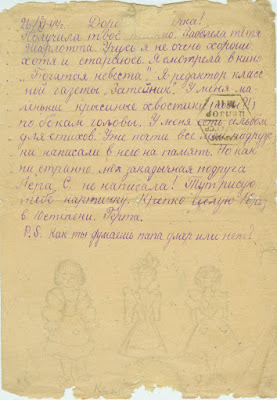 Дорогая
Получила твоё письмо. Заболела тётя
Шарлотта. Учусь я не очень хорошо
хотя и стараюсь. Я смотрела в кино
„Богатая невеста“. Я редактор класс
ной газеты „Затейник“. У меня ма-
ленькие крысиные хвостики
по бокам головы. У меня есть альбом
для стихов. Уже почти все мои подруж
ки написали в него на память. Но как
ни странно, моя закадычная подруга
Лепа С. не написала! Тут рисую
тебе картинку. Крепко целую
в Герта.
P.S. Как ты думаешь папа умер или нет?